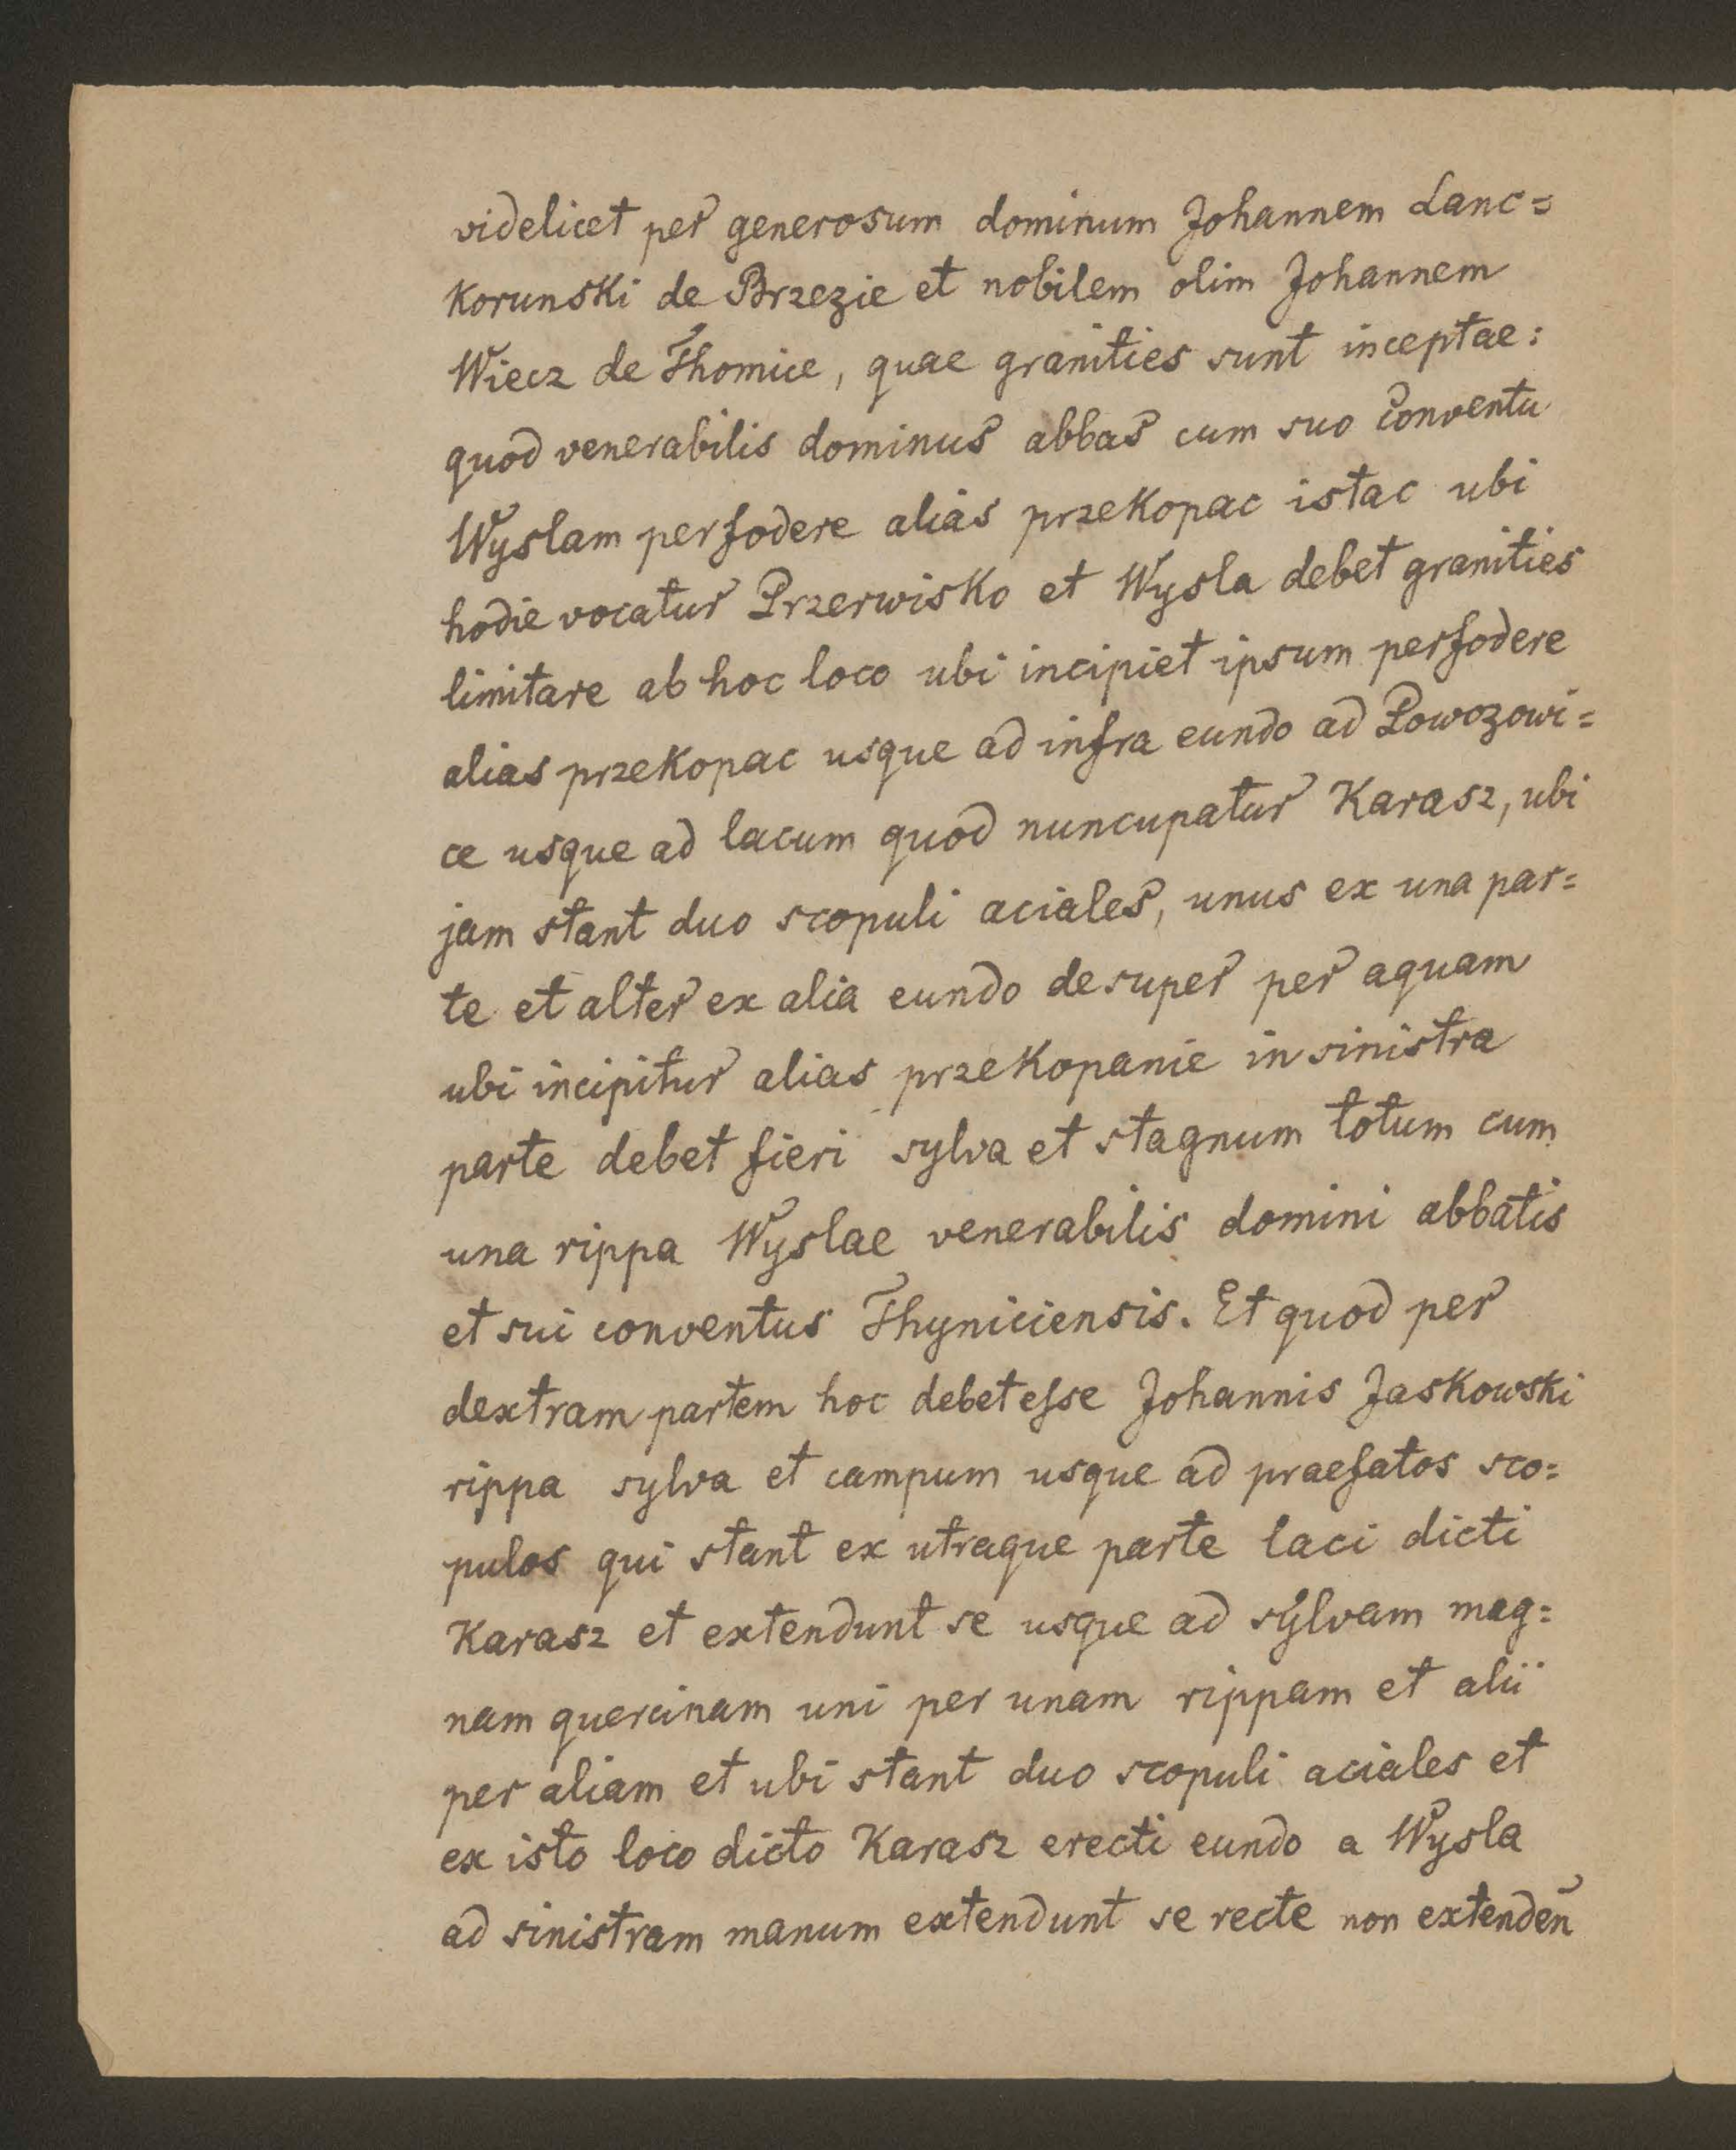 videlicet per generosum dominum Johannem Lanc=
korunski de Brzezie et nobilem olim Johannem
Wiecz de Thomice, quae granities sunt inceptae:
quod venerabilis dominus abbas cum suo conventu
Wyslam perfodere alias przekopac istac ubi
hodie vocatur Przerwisko et Wysla debet granities
limitare ab hoc loco ubi incipiet ipsum perfodere
alias przekopac usque ad infra eundo ad Powozowi=
ce usque ad lacum quod nuncupatur Karasz, ubi
jam stant duo scopuli aciales, unus ex una par=
te et alter ex alia eundo desuper per aquam
ubi incipitur alias przekopanie in sinistra
parte debet fieri sylva et stagnum totum cum
una rippa Wyslae venerabilis domini abbatis
et sui conventus Thyniciensis. Et quod per
dextram partem hoc debet esse Johannis Jaskowski
rippa sylva et campum usque ad praefatos sco=
pulos qui stant ex utraque parte laci dicti
Karasz et extendunt se usque ad sylvam mag=
nam quercinam uni per unam rippam et alii
per aliam et ubi stant duo scopuli aciales et
ex isto loco dicto Karasz erecti eundo a Wysla
ad sinistram manum extendunt se recte non extenden̄